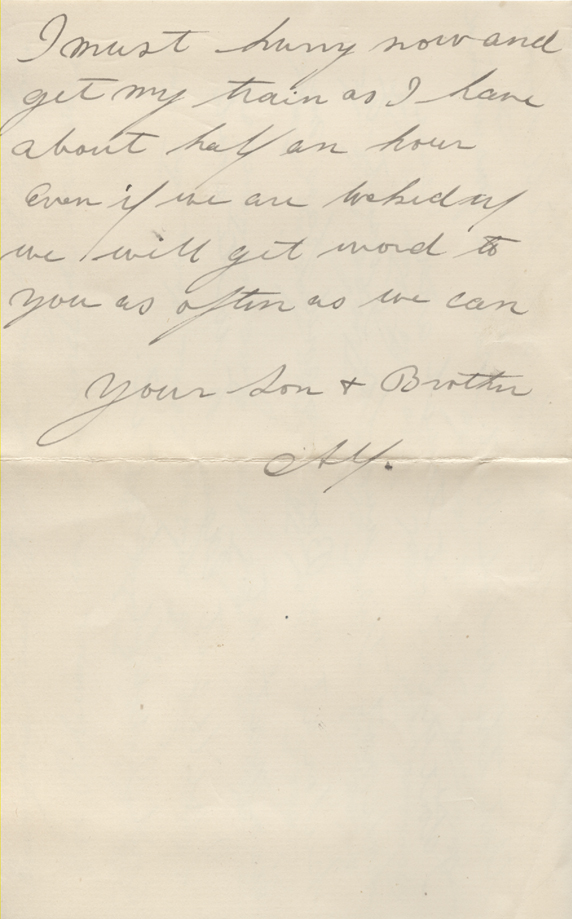 I must hurry now and
get my train as I have
about half an hour
Even if we are
we will get word to
you as often as we can
Your Son & Brother